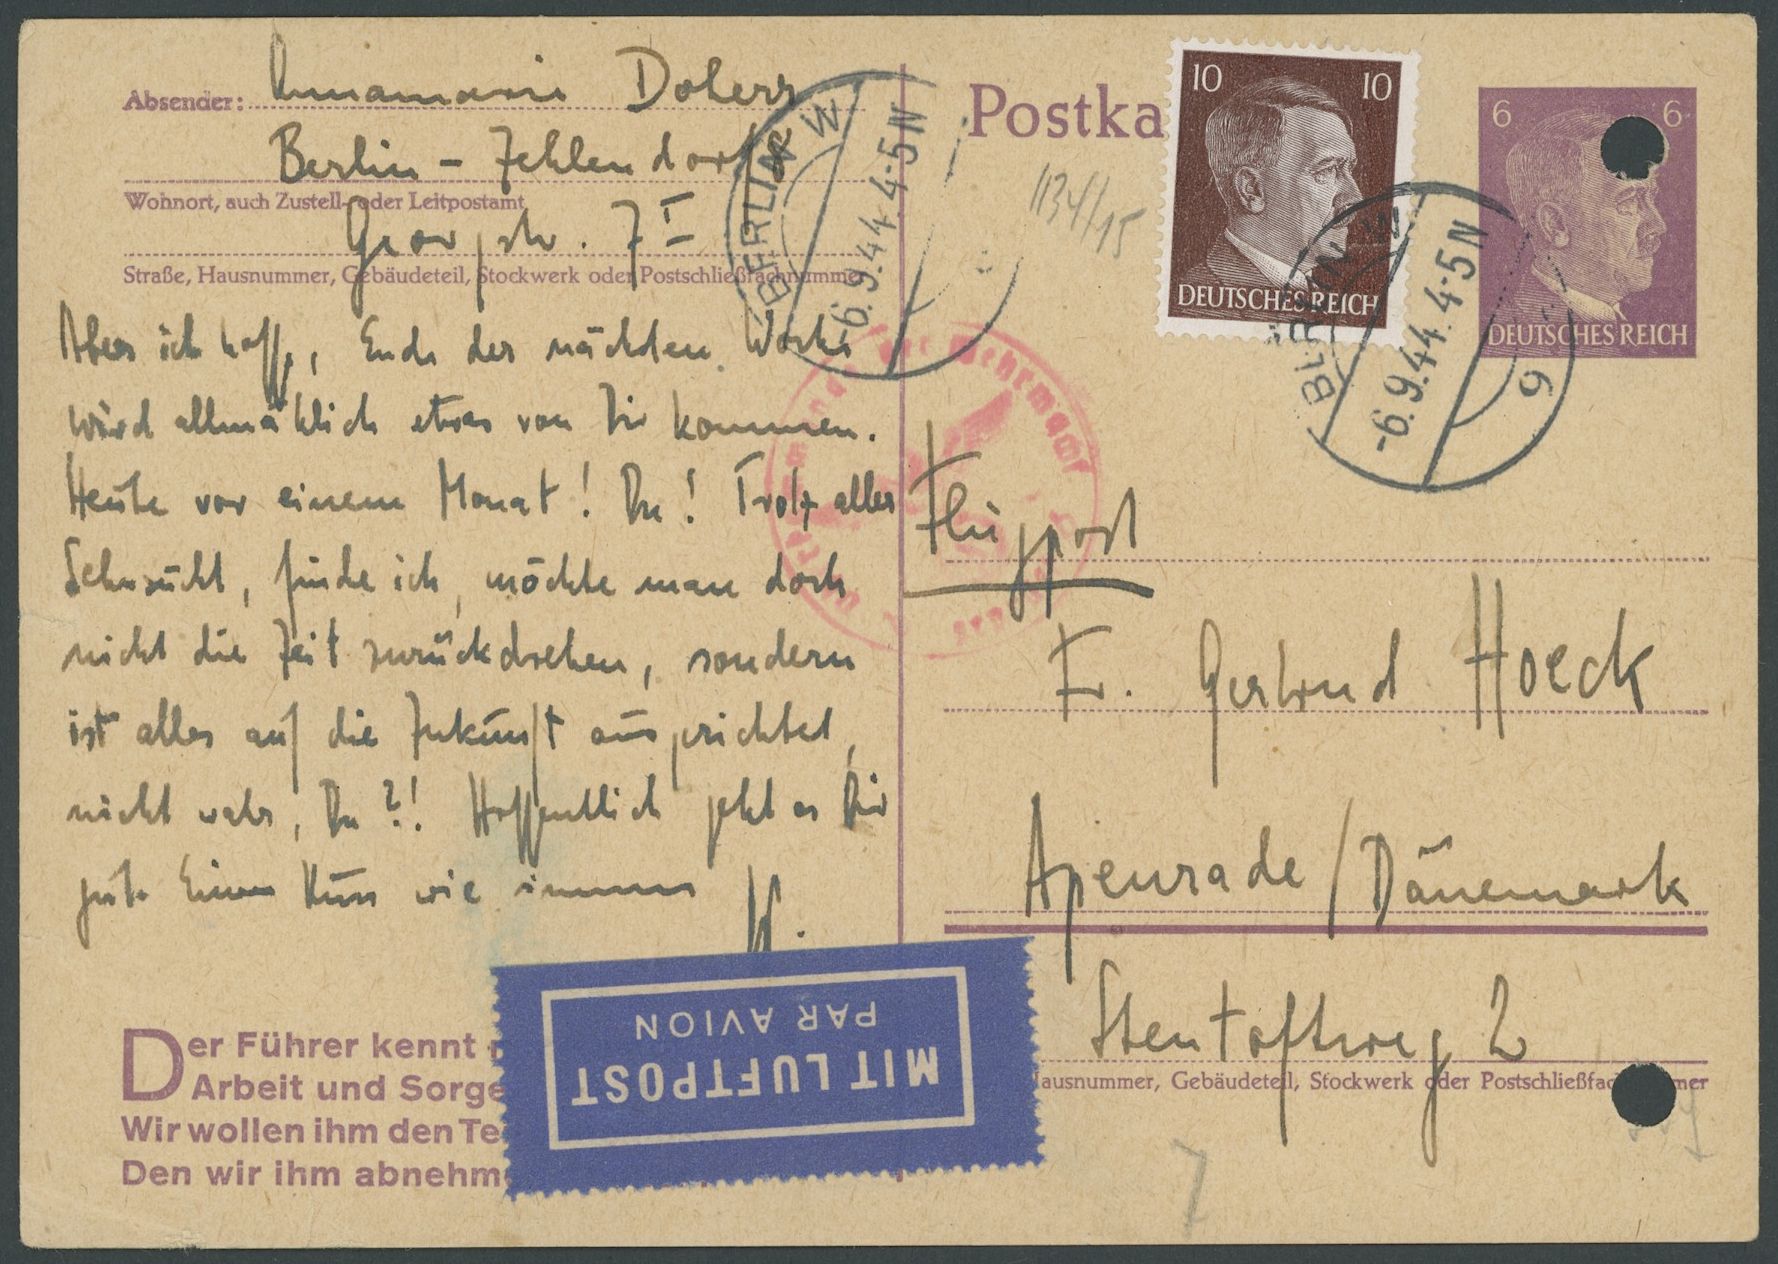 Absender: Annamarie Doherr
Berlin - Zehlendorf
Wohnort, auch Zustell- oder Leitpostamt
Georgstr. 7 I
Straße, Hausnummer, Gebäudeteil, Stockwerk oder Postschließfachnummer
Aber ich hoffe, Ende der nächsten Woche
wird allmählich etwas von Dir kommen.
Heute vor einem Monat! Du! Trotz aller
Sehnsucht, finde ich, möchte man doch
nicht die Zeit zurückdrehen, sondern
ist alles auf die Zukunft ausgerichtet,
nicht wahr, Du?! Hoffentlich geht es Dir
gut. Einen Kuss wie immer
Der Führer kennt
Arbeit und Sorge
Wir wollen ihm den Te
Den wir ihm abnehm
MIT LUFTPOST
PAR AVION
BERLIN W
-6.9.44.4-5N
Wehrmacht
Postka
1134/15
10 10
DEUTSCHES REICH
6 6
DEUTSCHES REICH
BERLIN W
-6.9.44.4-5N
9
Flugpost
Fr. Gertrud Hoeck
Apenrade / Dänemark
Stentoftweg 2
ausnummer, Gebäudeteil, Stockwerk oder Postschließfachnummer
7